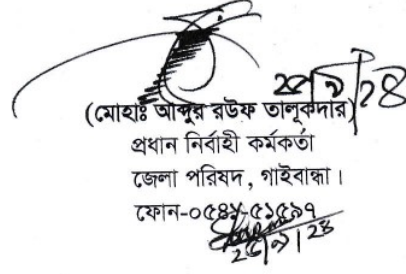 (মোহাঃ আব্দুর রউফ তালুকদার)
প্রধান নির্বাহী কর্মকর্তা
জেলা পরিষদ, গাইবান্ধা।
ফোন-০৫৪১-৫১৫৯৭